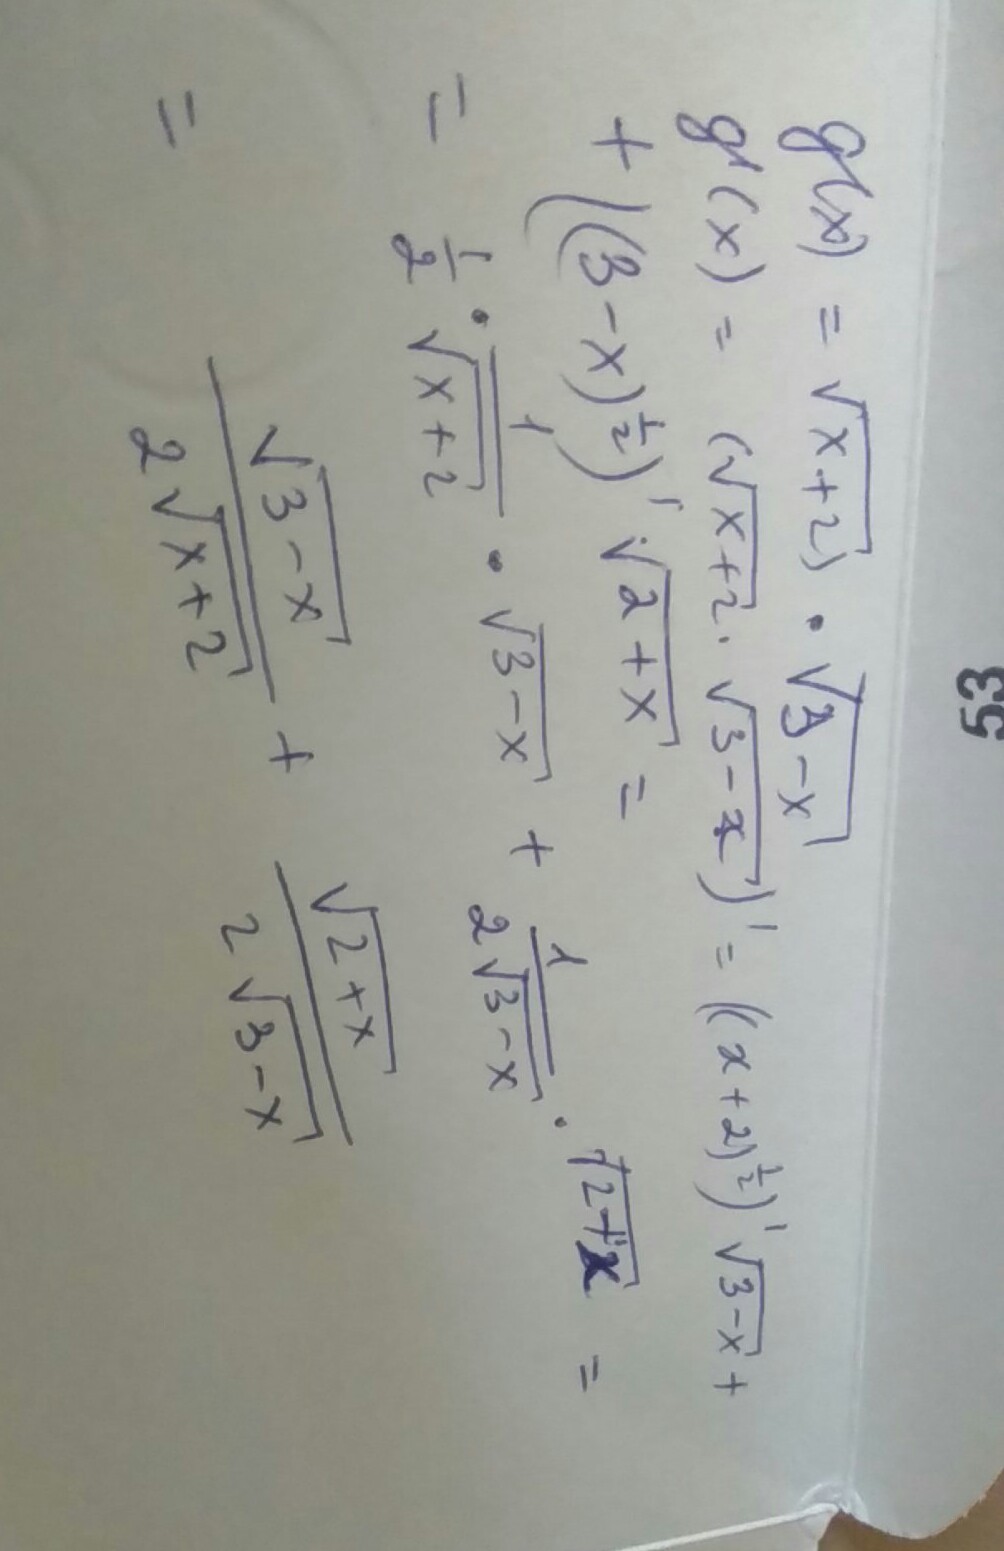 53
g(x) = √(x+2) · √(3-x)
g'(x) = (√(x+2) · √(3-x))' = ((x+2)^(1/2))' √(3-x) +
+ ((3-x)^(1/2))' √(2+x) =
= 1/2 · 1/√(x+2) · √(3-x) + 1/(2√(3-x)) · √(2+x) =
= √(3-x)/(2√(x+2)) + √(2+x)/(2√(3-x))